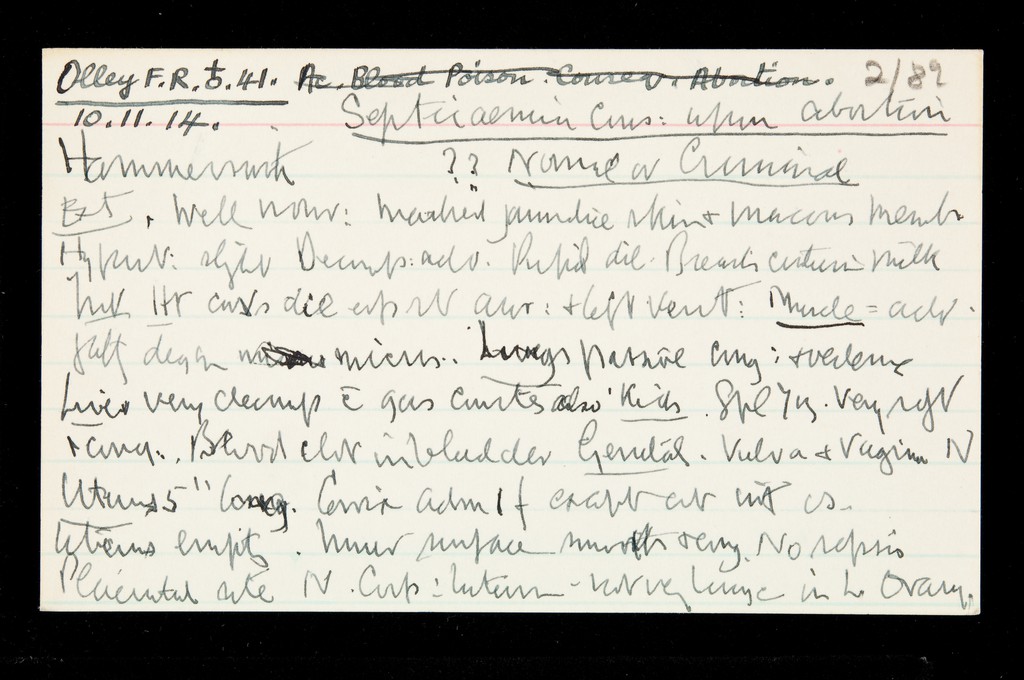 Olley F.R. 41. Ac. Blood Poison. Conseq. Abortion. 2/89
10.11.14. Septicaemia Cons: upon abortion
Hammersmith ?? Normal or Criminal
Ext. Well nour: marked jaundice skin + mucous memb.
Hypost: slight Decomp: adv. Pupil dil. Breasts contain milk
Int Ht cavs dil esp Rt aur: + left vent: Muscle = adv.
fatty degen micros. Lungs passive cong: + oedema
Liver very decomp c gas cavities also Kids. Spl 7 oz. Very soft
+ cong. Blood clot in bladder Genitals. Vulva + Vagina N
Uterus 5" long. Cervix adm 1 f except at int os.
Uterus empty. Inner surface smooth + cong. No sepsis
Placental site N. Corp: luteum - not very large in L. Ovary.